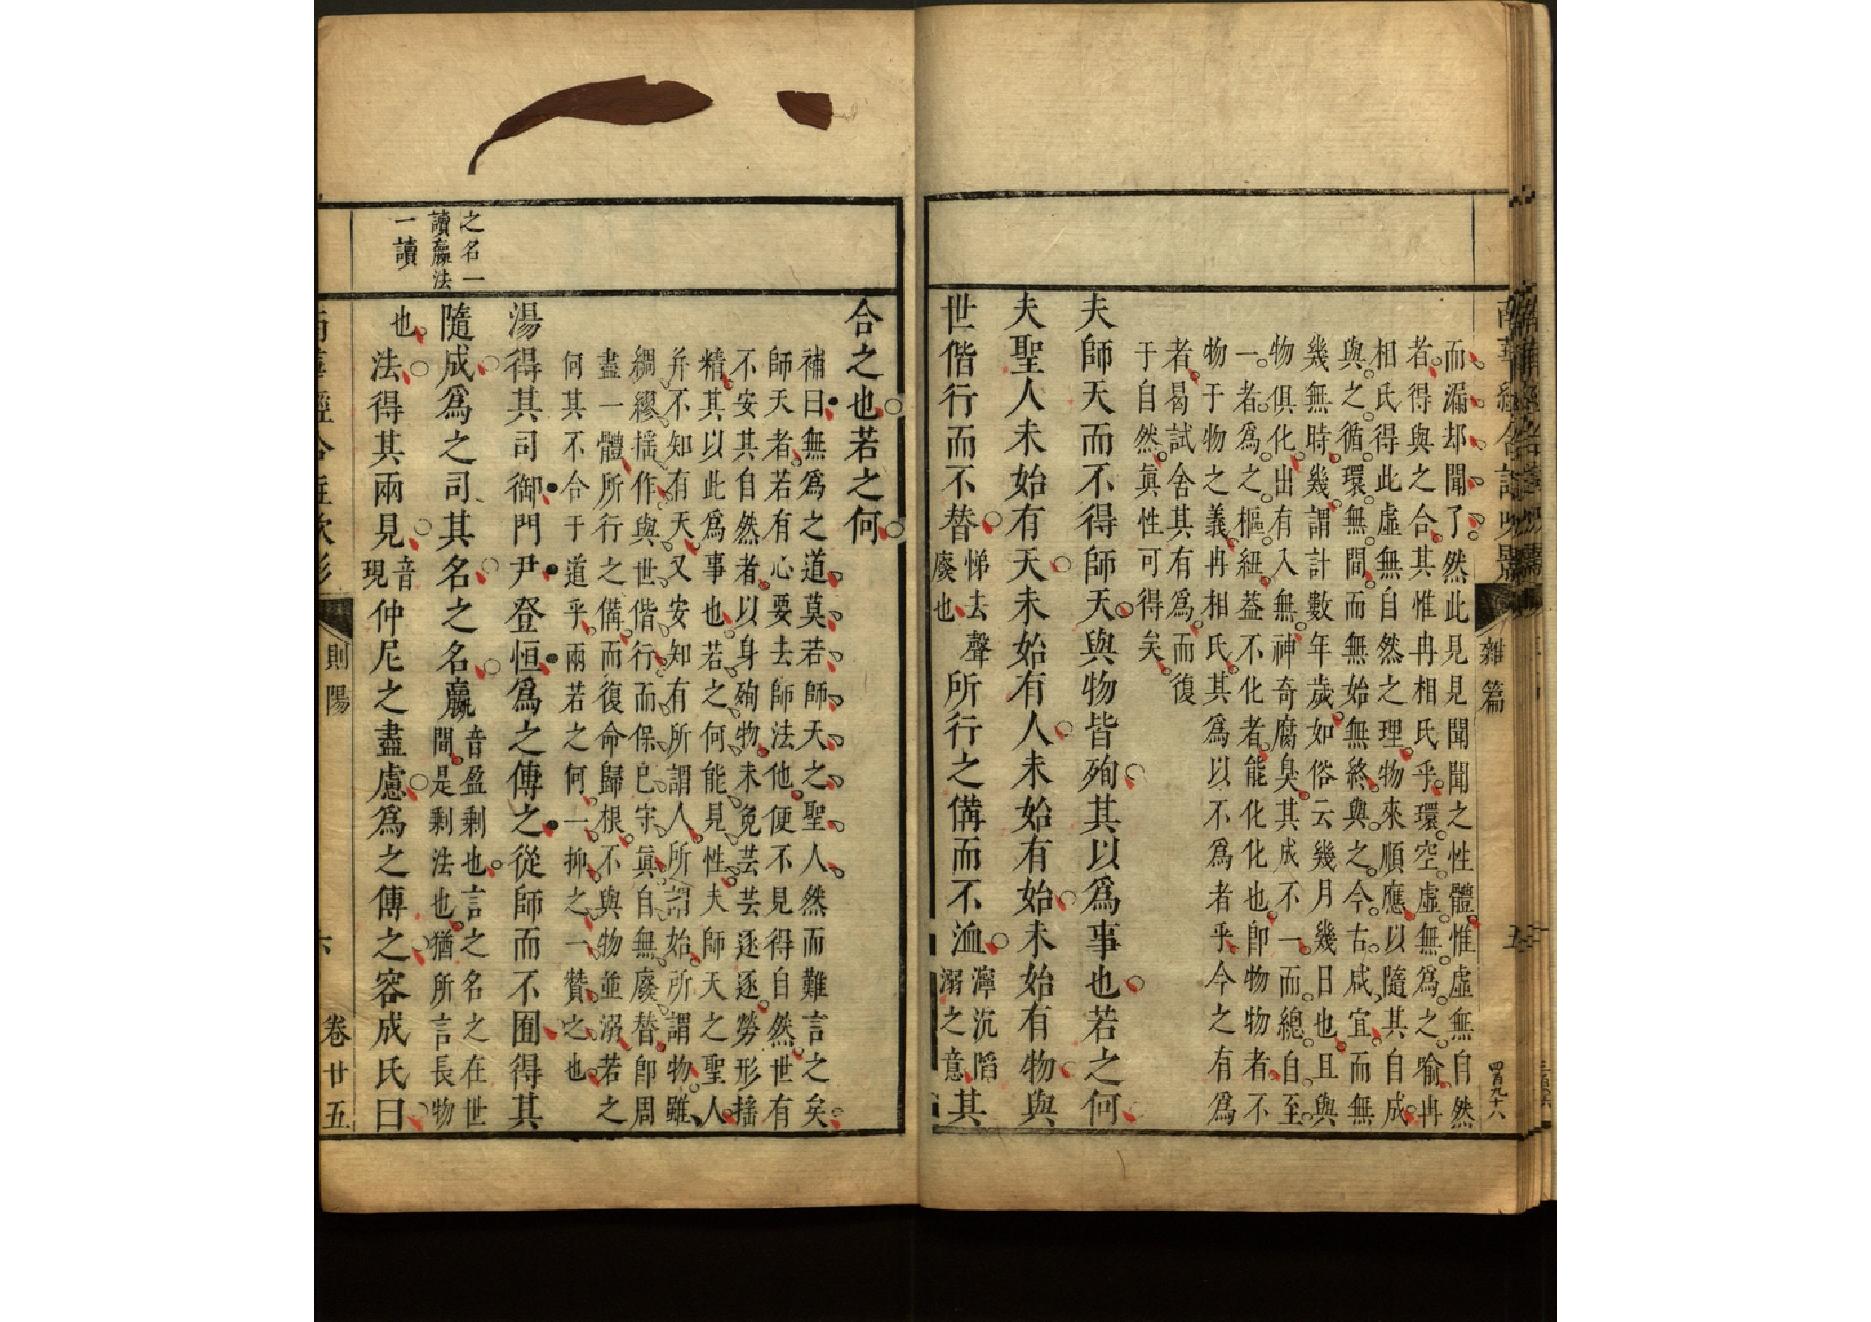 雜篇
四百九十八
而漏却聞了然此見見聞聞之性體惟虛無自然
者得與之合其惟冉相氏乎環空虛無為之喻冉
相氏得此虛無自然之理物來順應以隨其自成
與之循環無間而無始無終與之今古咸宜而無
幾無時幾謂計數年歲如俗云幾月幾日也且與
物俱化出有入無神奇腐臭其成不一而總自至
一者為之樞紐葢不化者能化化也卽物物者不
物于物之義冉相氏其為以不為者乎今之有為
者曷試舍其有為而復
于自然眞性可得矣
夫師天而不得師天與物皆殉其以爲事也若之何
夫聖人未始有天未始有人未始有始未始有物與
世偕行而不替悌去聲廢也所行之備而不洫濘沉陷溺之意其
合之也若之何
補曰無爲之道莫若師天之聖人然而難言之矣
師天者若有心要去師法他便不見得自然世有
不安其自然者以身殉物未免芸芸逐逐勞形搖
精其以此爲事也若之何能見性夫師天之聖人
并不知有天又安知有所謂人所謂始所謂物雖
綢繆搖作與世偕行而保巳守眞自無廢替卽周
盡一體所行之備而復命歸根不與物並溺若之
何其不合于道乎兩若之何一抑之一贊之也
湯得其司御門尹登恒爲之傅之從師而不囿得其
之名一
讀嬴法
一讀
隨成爲之司其名之名嬴音盈剩也言之名之在世間是剩法也猶所言長物
也法得其兩見音現仲尼之盡慮爲之傅之容成氏曰
則陽
六
卷廿五